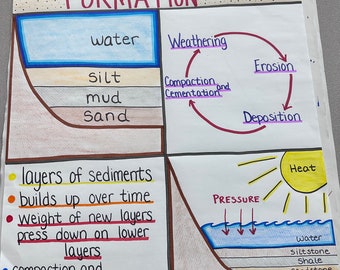 FORMATION
water
silt
mud
sand
Weathering
Erosion
Deposition
Compaction and
Cementation
layers of sediments
builds up over time
weight of new layers
press down on lower
layers
compaction and
Heat
PRESSURE
water
siltstone
shale